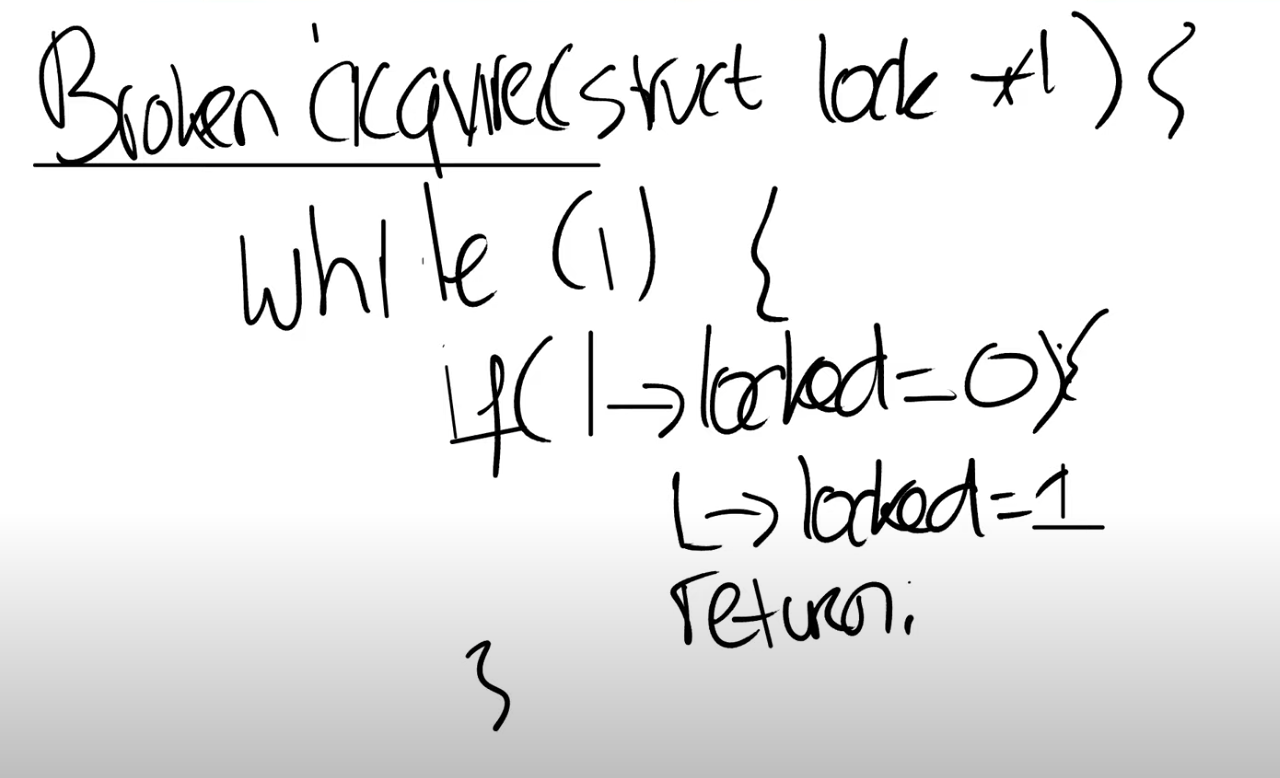 Broken acquire(struct lock *l) {
while (1) {
if( l->locked=0){
L->locked=1
return;
}